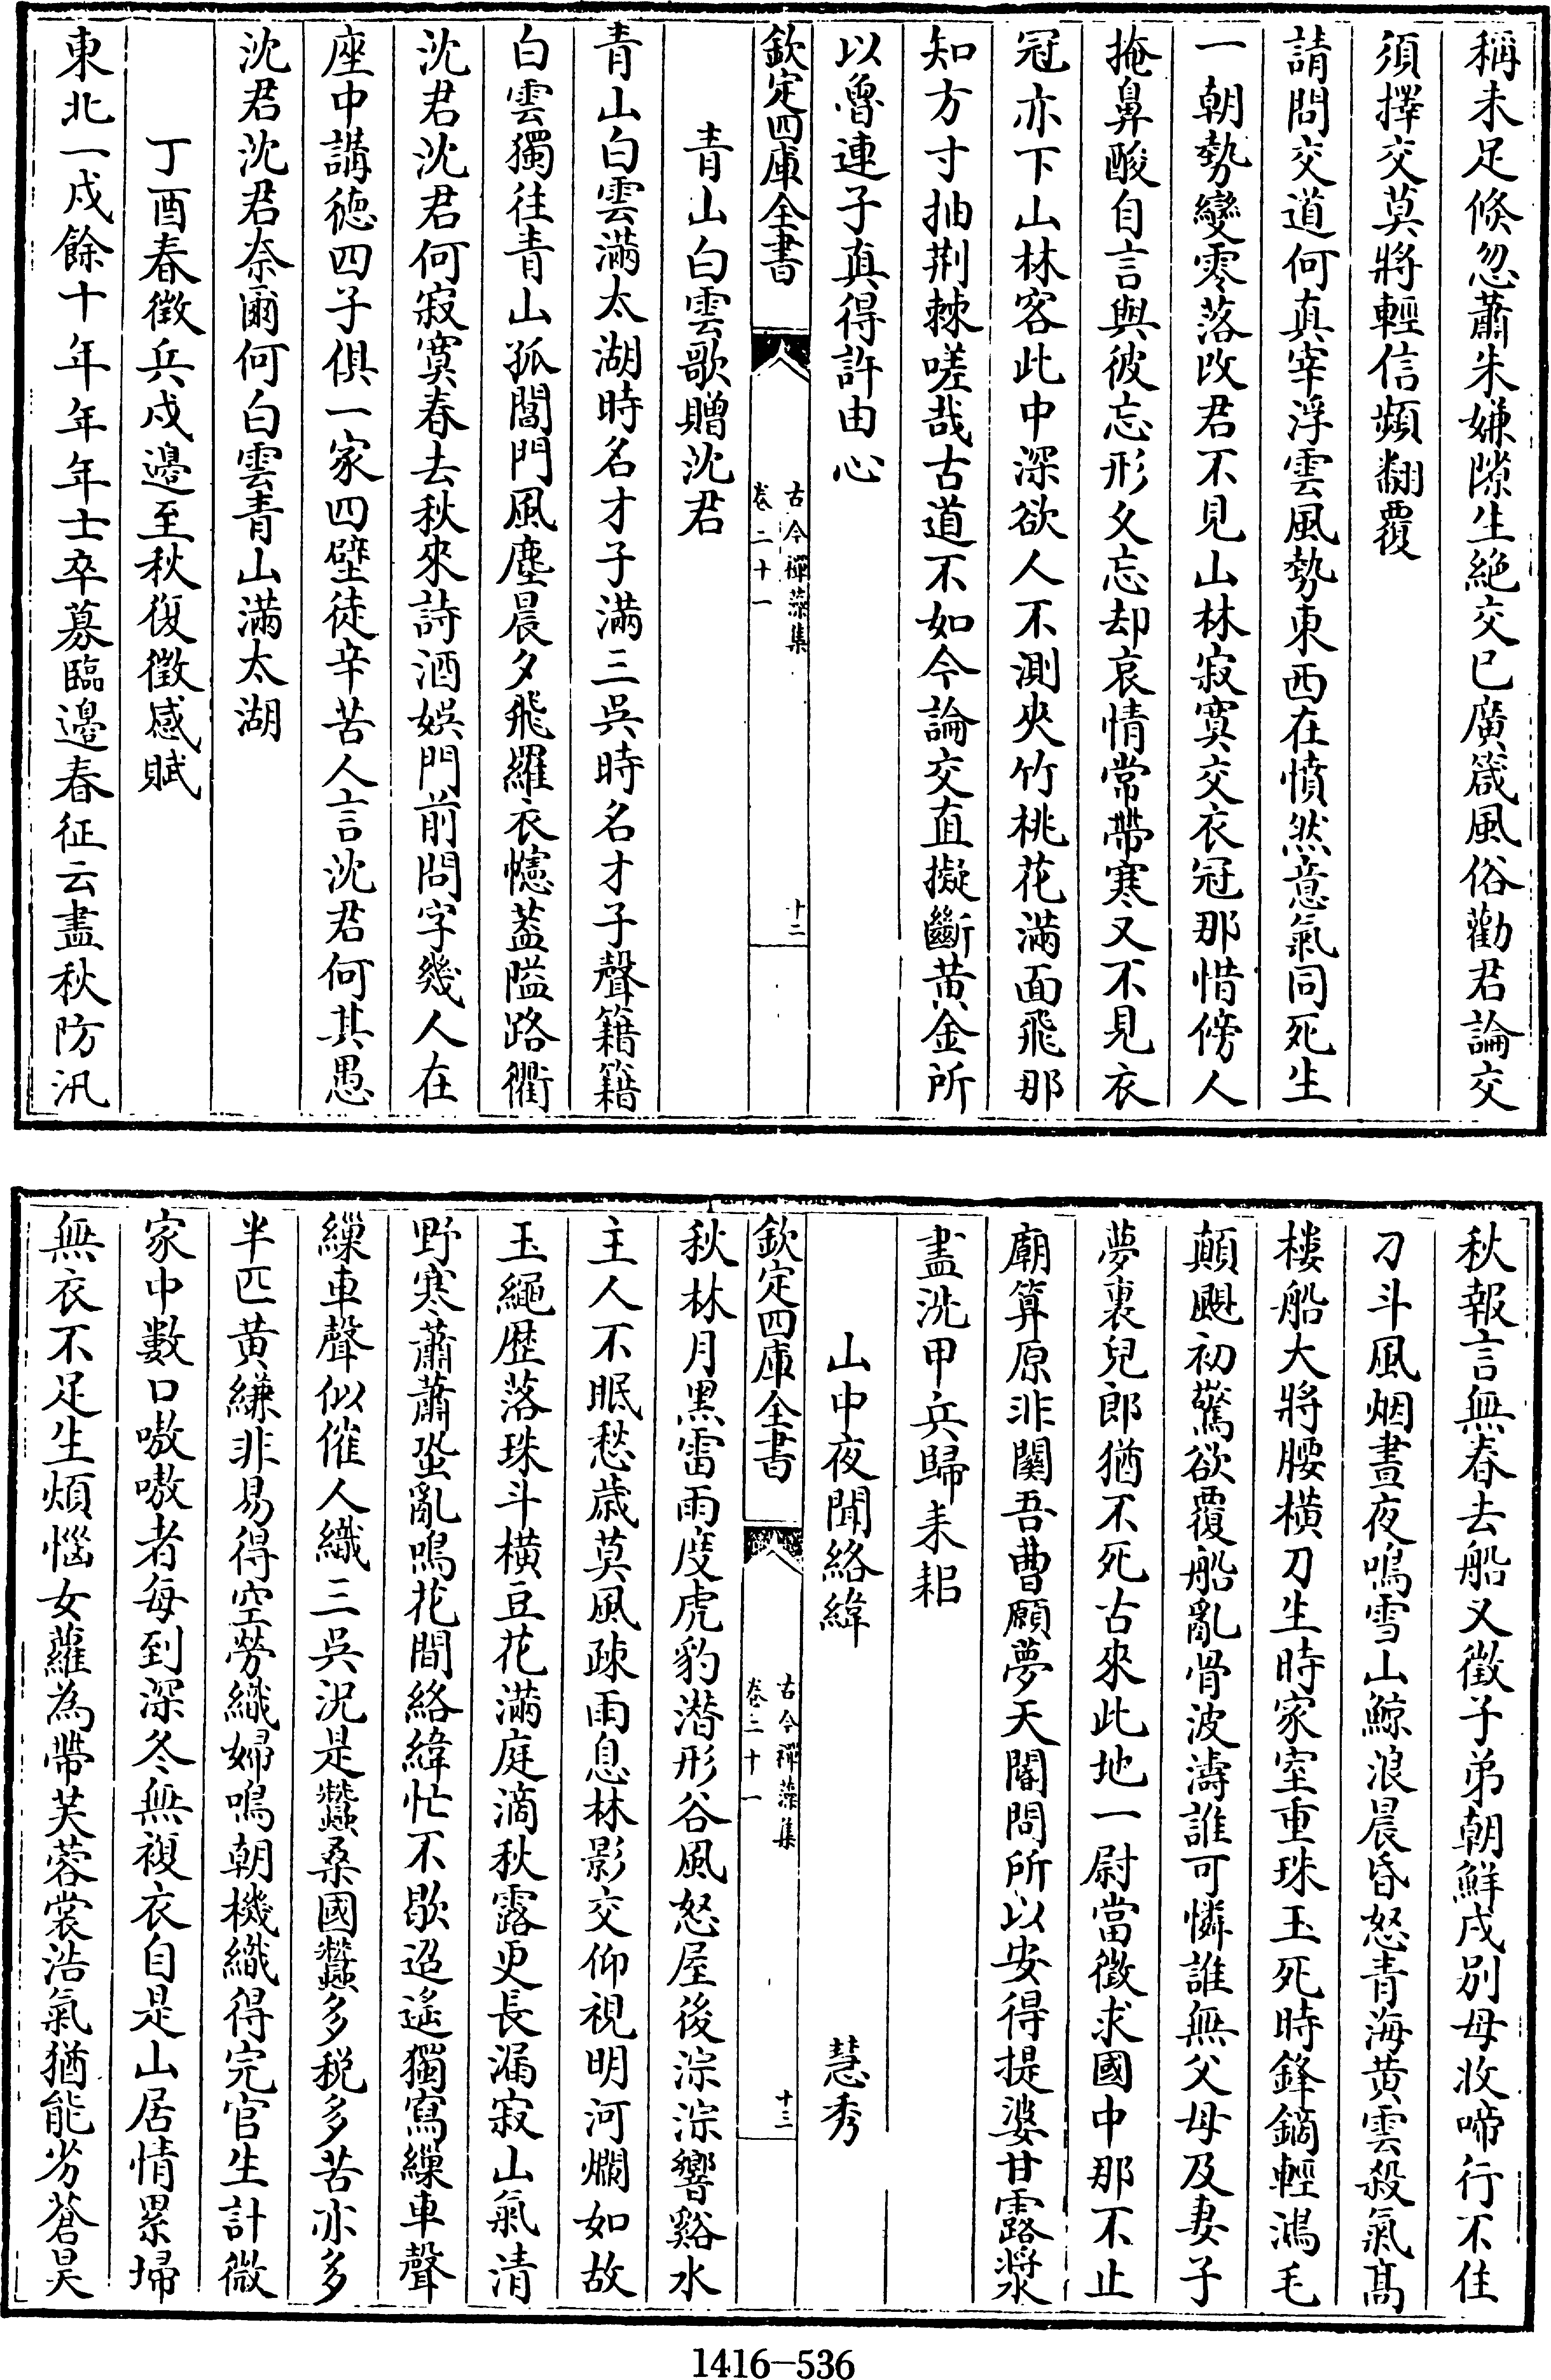 稱未足倐忽蕭朱嫌隙生絶交已廣箴風俗勸君論交
須擇交莫將輕信頻翻覆
請問交道何真宰浮雲風勢東西在憤然意氣同死生
一朝勢變零落改君不見山林寂寞交衣冠那惜傍人
掩鼻酸自言與彼忘形久忘却哀情常帶寒又不見衣
冠亦下山林客此中深欲人不測夾竹桃花滿面飛那
知方寸抽荆棘嗟哉古道不如今論交直擬斷黄金所
以魯連子真得許由心
欽定四庫全書
古今禪藻集
卷二十一
十二
青山白雲歌贈沈君
青山白雲滿太湖時名才子滿三吳時名才子聲籍籍
白雲獨往青山孤閶門風塵晨夕飛羅衣幰蓋隘路衢
沈君沈君何寂寞春去秋來詩酒娯門前問字幾人在
座中講徳四子俱一家四壁徒辛苦人言沈君何其愚
沈君沈君奈爾何白雲青山滿太湖
丁酉春徵兵戍邊至秋復徵感賦
東北一戍餘十年年年士卒募臨邊春征云盡秋防汛
秋報言無春去船又徵子弟朝鮮戍别母收啼行不住
刀斗風烟晝夜鳴雪山鯨浪晨昏怒青海黄雲殺氣髙
樓船大將腰横刀生時家室重珠玉死時鋒鏑輕鴻毛
顛颶初驚欲覆船亂骨波濤誰可憐誰無父母及妻子
夢裏兒郎猶不死古來此地一尉當徵求國中那不止
廟算原非闗吾曹願夢天閽問所以安得提婆甘露漿
盡洗甲兵歸耒耜
山中夜聞絡緯
慧秀
欽定四庫全書
古今禪藻集
卷二十一
十三
秋林月黒雷雨度虎豹潛形谷風怒屋後淙淙響谿水
主人不眠愁歳莫風疎雨息林影交仰視明河爛如故
玉繩歴落珠斗横豆花滿庭滴秋露更長漏寂山氣清
野寒蕭蕭蛩亂鳴花間絡緯忙不歇迢遥獨寫繅車聲
繅車聲似催人織三吳況是蠶桑國蠶多税多苦亦多
半匹黄縑非易得空勞織婦鳴朝機織得完官生計微
家中數口嗷嗷者每到深冬無複衣自是山居情累埽
無衣不足生煩惱女蘿為帶芙蓉裳浩氣猶能劣蒼昊
1416-536